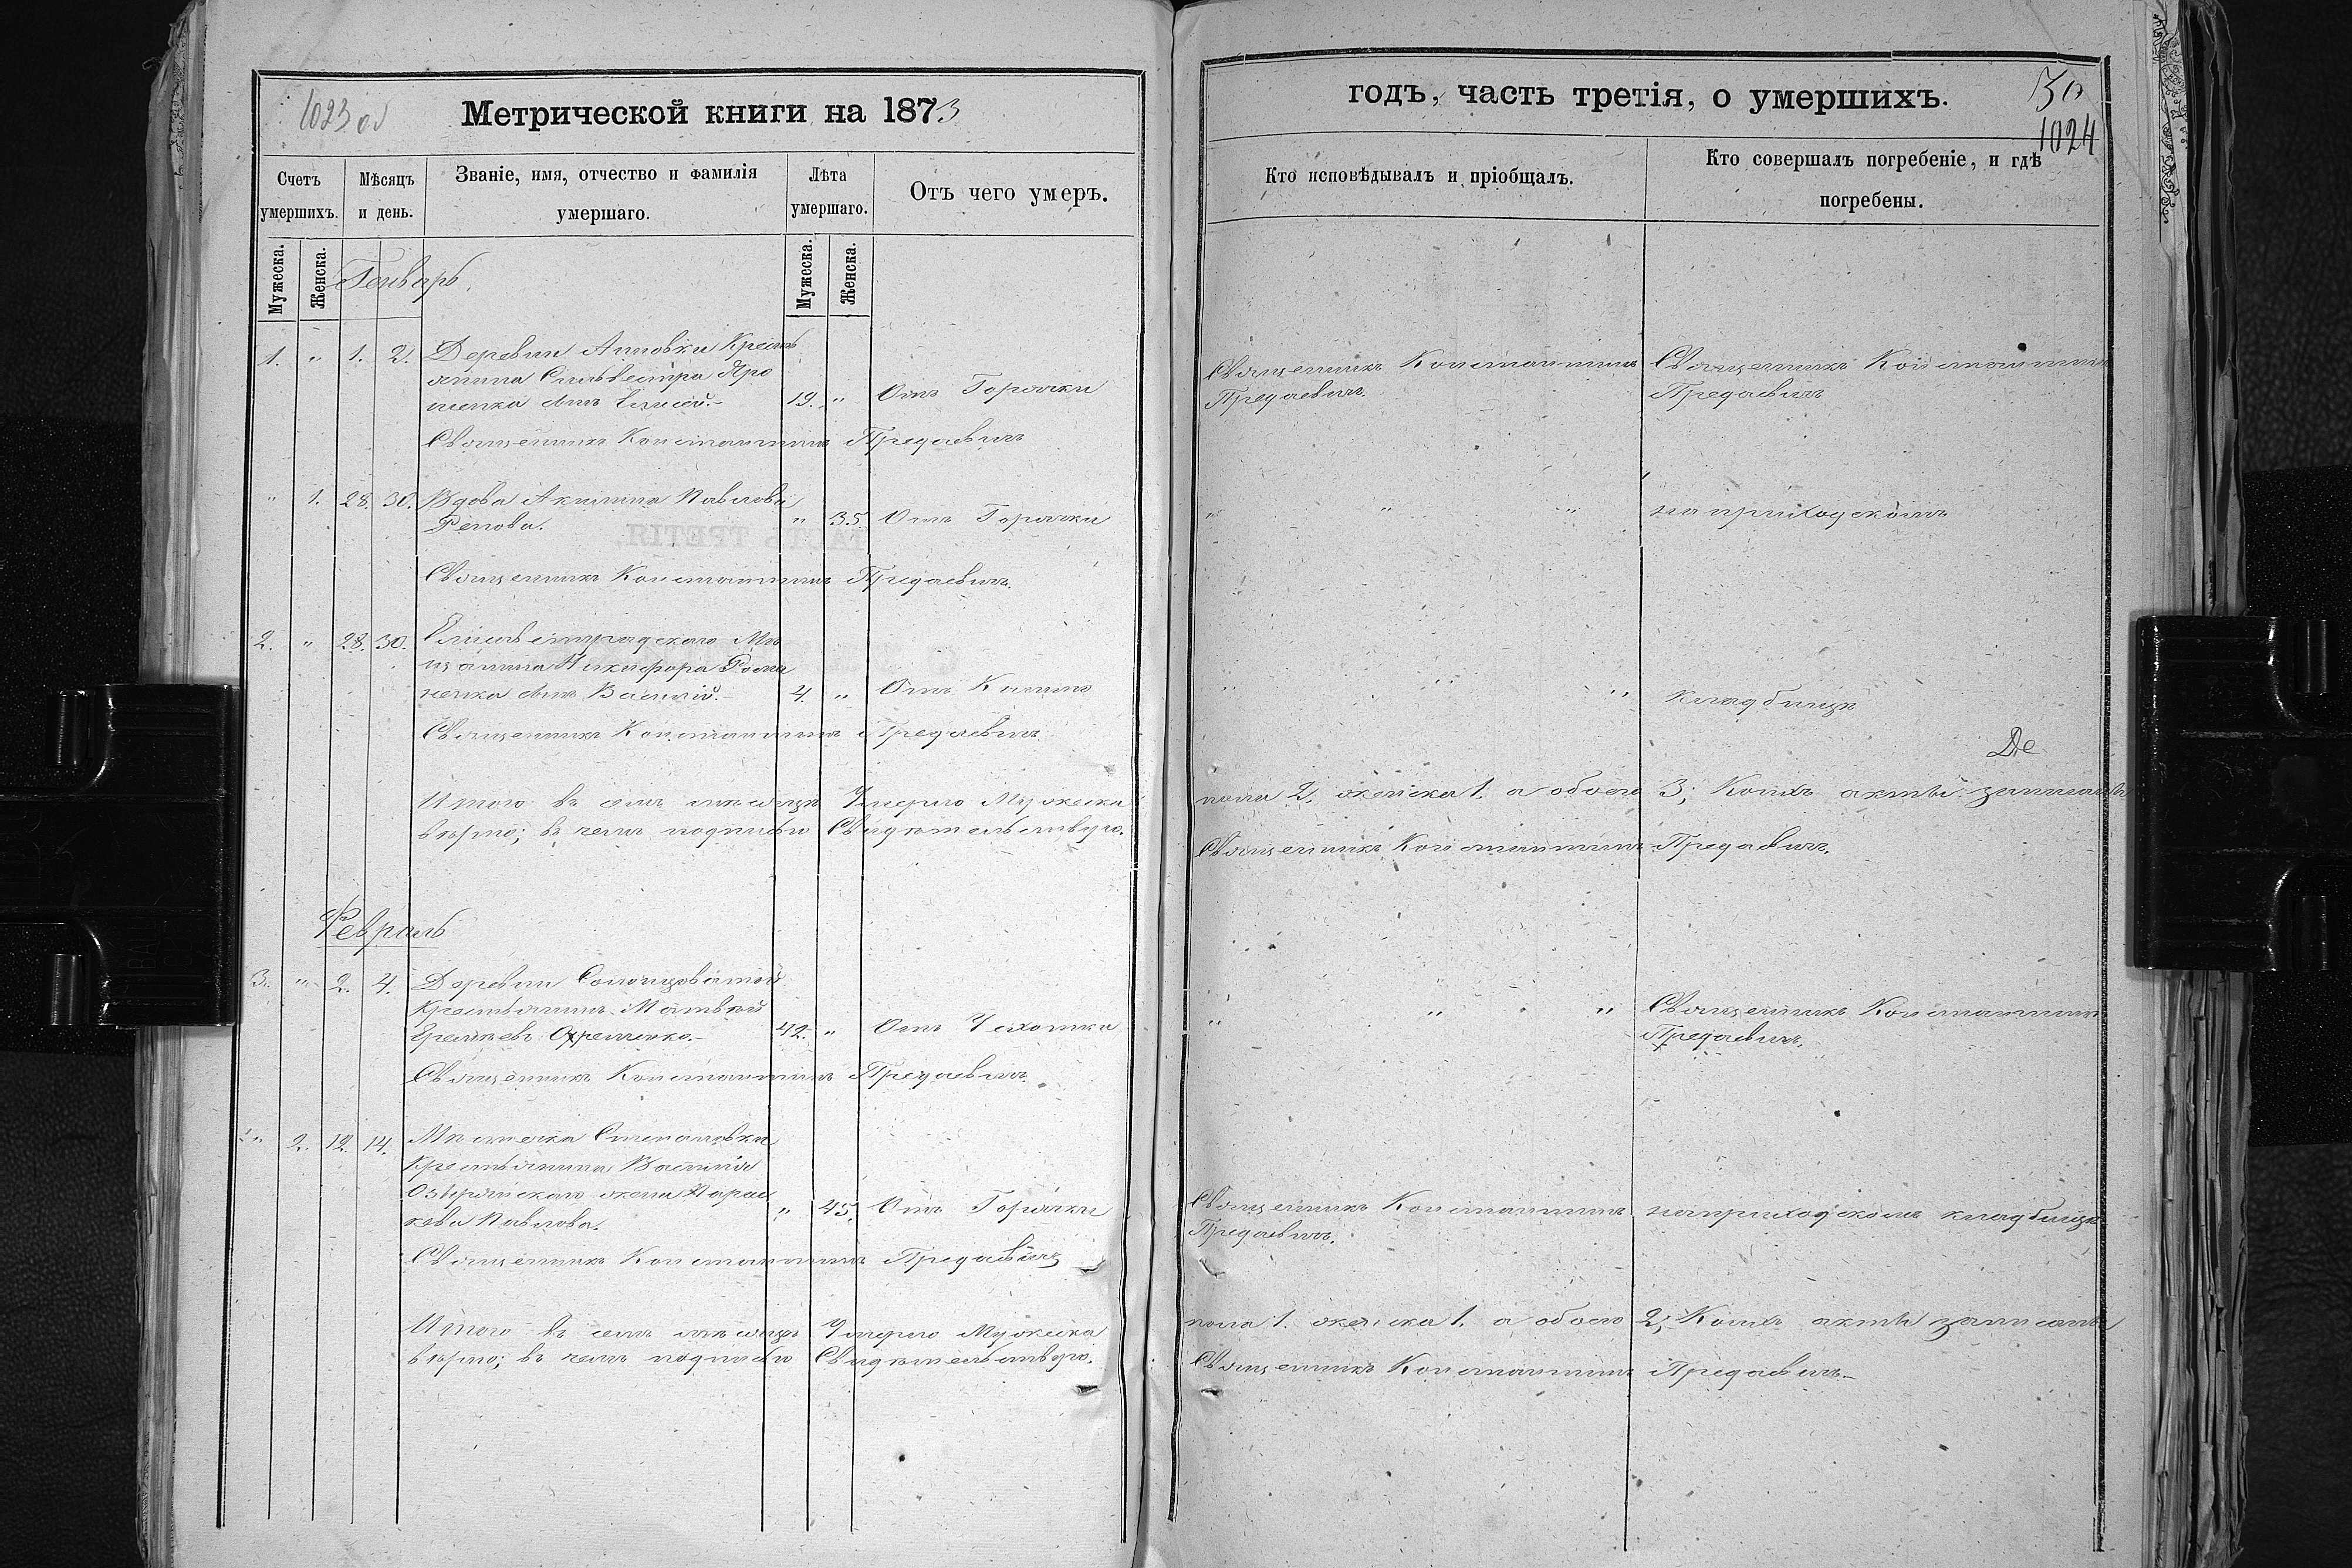 1023 об
Метрической книги на 1873
Счетъ умершихъ.
Мѣсяцъ и день.
Званіе, имя, отчество и фамилія умершаго.
Лѣта умершаго.
Отъ чего умеръ.
Мужеска.
Женска.
Мужеска.
Женска.
Генварь
1. " 1. 2. Деревни Анновки Кресть
янина Сильвестра Про
ценка сынъ Елисей.- 19. " Отъ Горячки
Священникъ Константинъ Предаевичъ
" 1. 28. 30. Вдова Акилина Павлова
" 35 Отъ Горячки
Священникъ Константинъ Предаевичъ.
2. " 28. 30. Елисаветградскаго Мѣ
щанина Никифора Рома
ненка сынъ Василій.- 4. " Отъ Кашлю
Священникъ Константинъ Предаевичъ
Итого въ семъ мѣсяцѣ Умерло Мужеска
вѣрно; въ чемъ подписью Свидѣтельствую.
Февраль
3. " 2. 4. Деревни Солонцоватой
Крестьянинъ Матвѣй
42. " Отъ Чахотки
Священникъ Константинъ Предаевичъ.
" 2. 12. 14. Мѣстечка Степановки
Крестьянина Василія
Озѣрянскаго жена Парас
кева Павлова. " 45. Отъ Горячки
Священникъ Константинъ Предаевичъ
Итого въ семъ мѣсяцѣ Умерло Мужеска
вѣрно; въ чемъ подписью Свидѣтельствую.
годъ, часть третія, о умершихъ.
30
1024
Кто исповѣдывалъ и пріобщалъ.
Кто совершалъ погребеніе, и гдѣ
погребены.
Священникъ Константинъ Священникъ Константинъ
Предаевичъ. Предаевичъ
" " " на приходскомъ
" " " кладбищѣ
Де
пола 2. женска 1. а обоего 3; Коихъ акты записаны
Священникъ Константинъ Предаевичъ.
" " " Священникъ Константинъ
Предаевичъ.
Священникъ Константинъ на приходскомъ кладбищѣ
Предаевичъ.
пола 1. женска 1. а обоего 2; Коихъ акты записаны
Священникъ Константинъ Предаевичъ.-